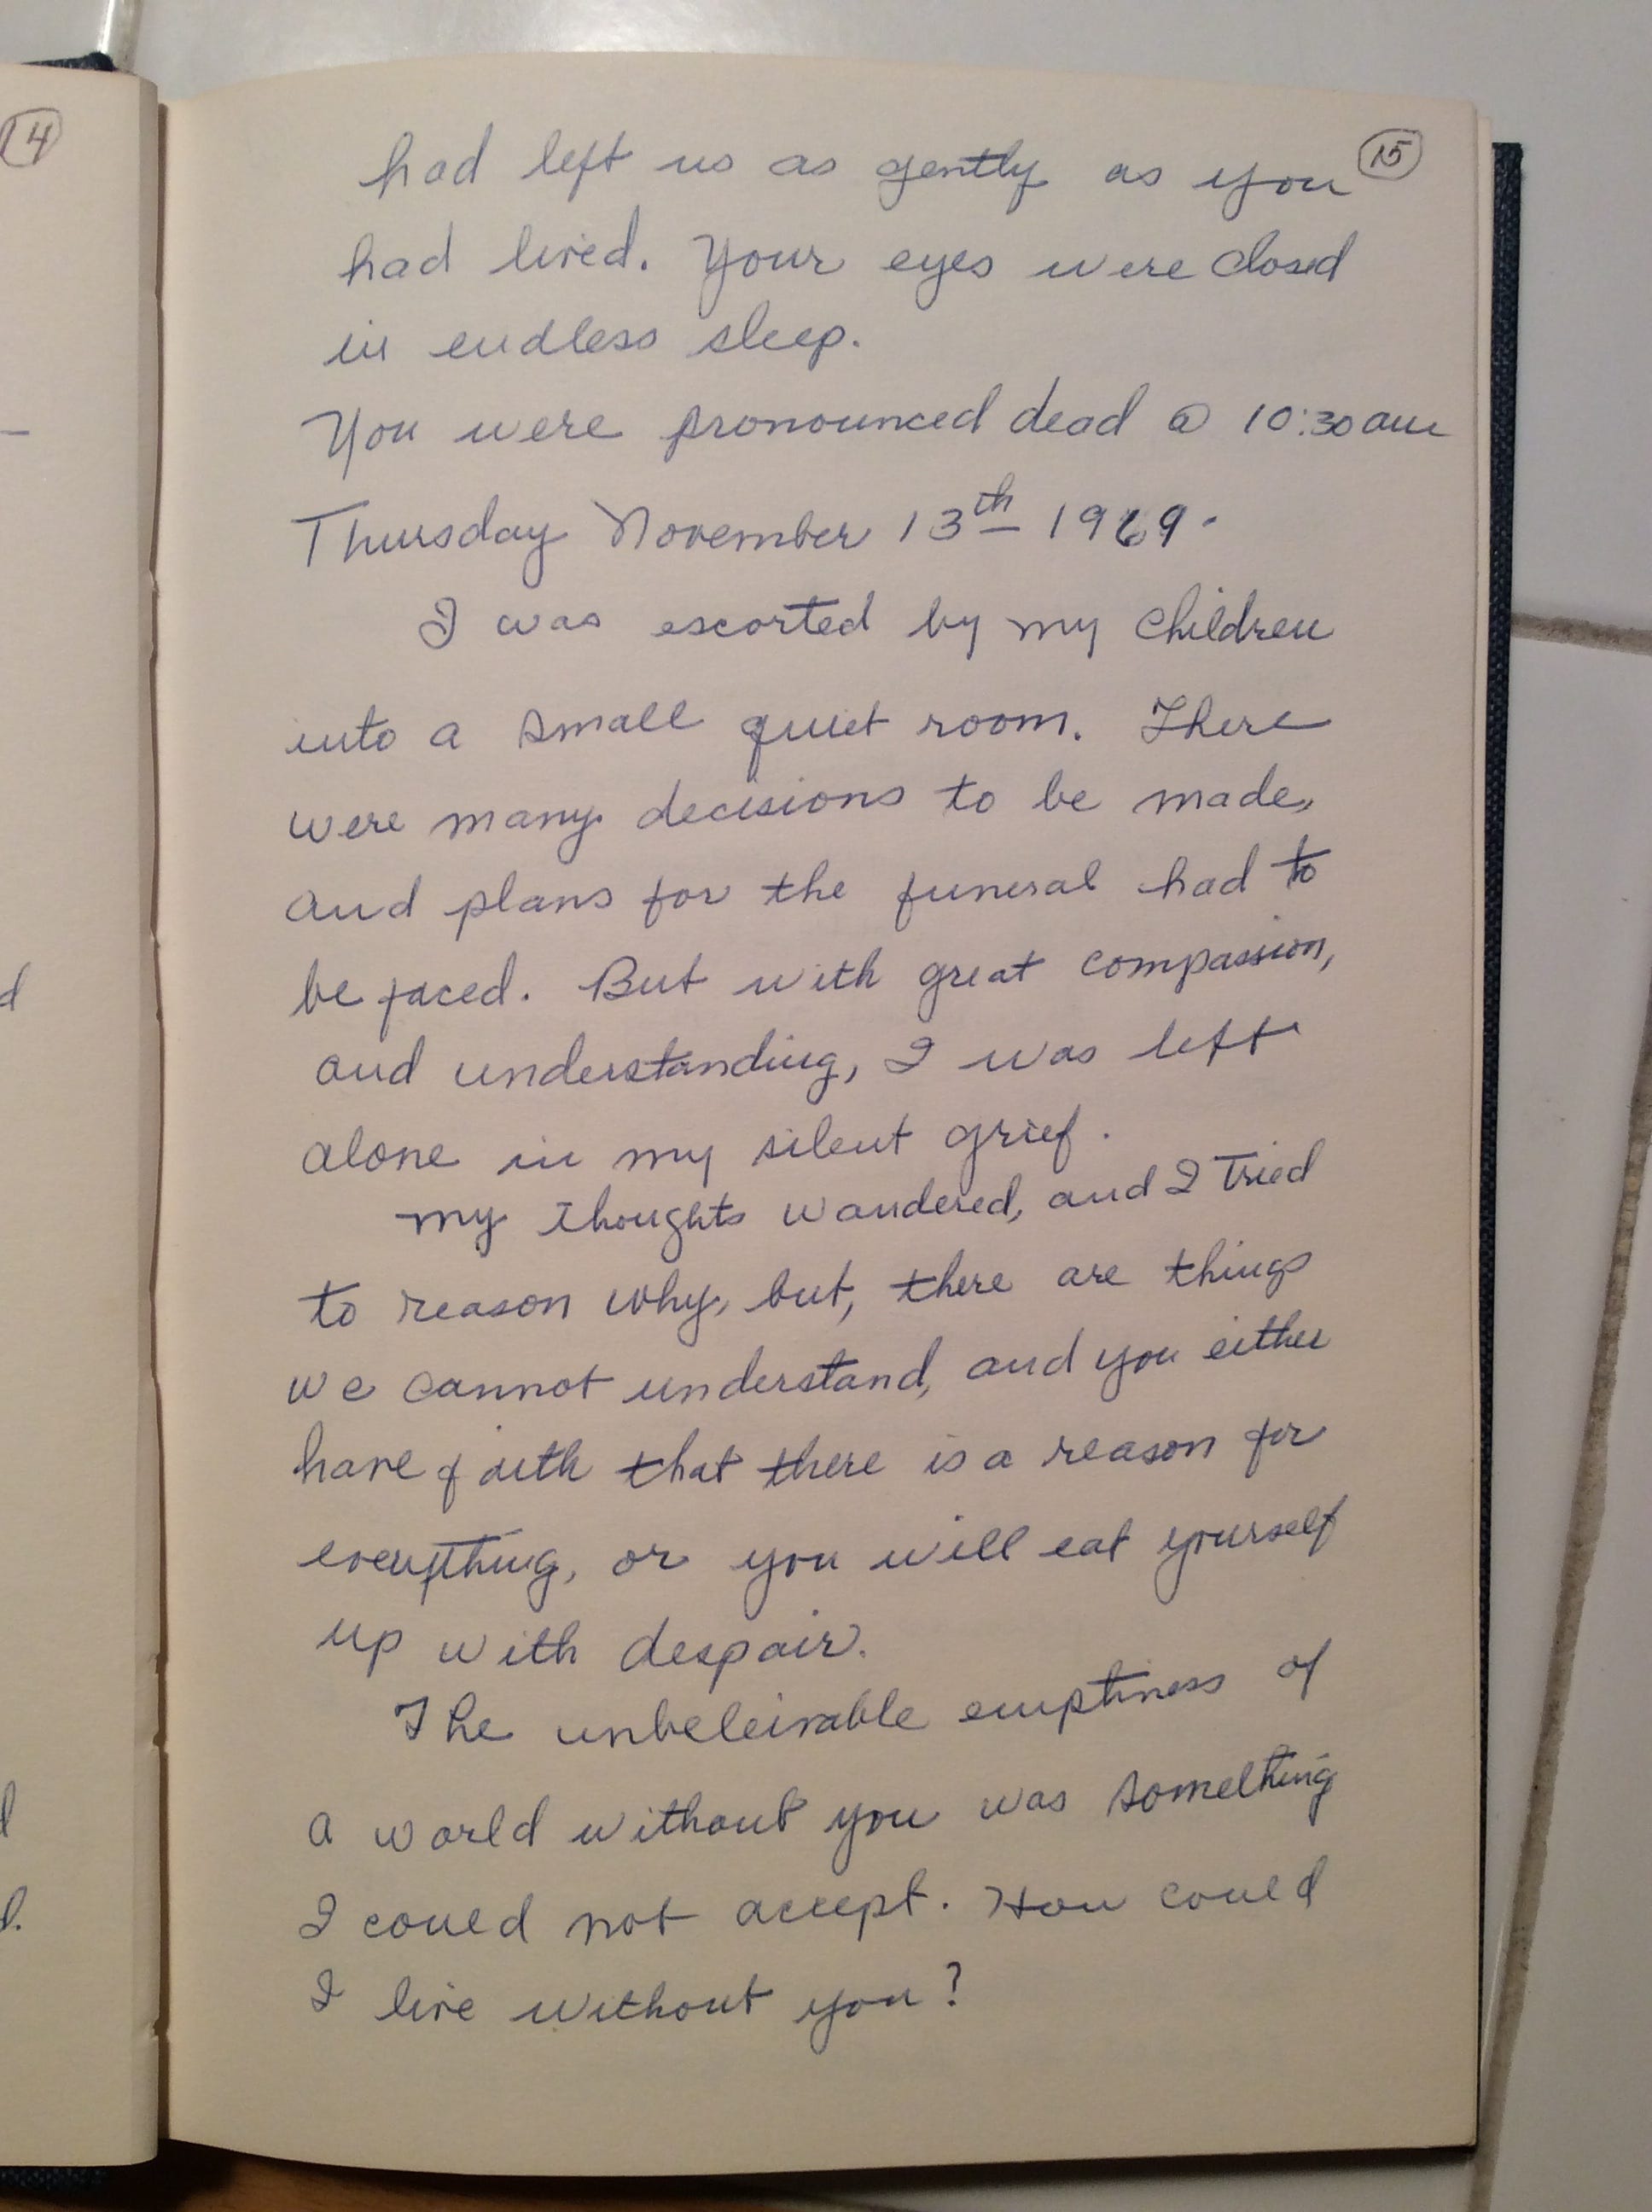 14
15
had left us as gently as you
had lived. Your eyes were closed
in endless sleep.
You were pronounced dead @ 10:30 am
Thursday November 13th 1969.
I was escorted by my children
into a small quiet room. There
were many decisions to be made,
and plans for the funeral had to
be faced. But with great compassion,
and understanding, I was left
alone in my silent grief.
my thoughts wandered, and I tried
to reason why, but, there are things
we cannot understand, and you either
have faith that there is a reason for
everything, or you will eat yourself
up with despair.
The unbeleivable emptiness of
a world without you was something
I could not accept. How could
I live without you?